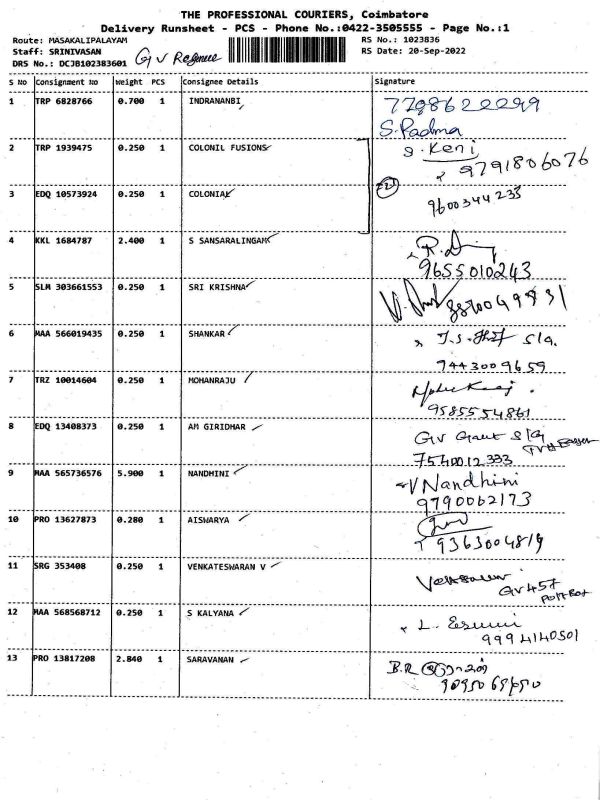 THE PROFESSIONAL COURIERS, Coimbatore
Delivery Runsheet - PCS - Phone No.:0422-3505555 - Page No.:1
Route: MASAKALIPALAYAM
RS No.: 1023836
Staff: SRINIVASAN
RS Date: 20-Sep-2022
DRS No.: DCJB102383601
S No Consignment No Weight PCS Consignee Details Signature
1 TRP 6828766 0.700 1 INDRANANBI
S.Padma
2 TRP 1939475 0.250 1 COLONIL FUSIONS
9791806076
3 EDQ 10573924 0.250 1 COLONIAL
9600344233
4 KKL 1684787 2.400 1 S SANSARALINGAM
9655010243
5 SLM 303661553 0.250 1 SRI KRISHNA
6 MAA 566019435 0.250 1 SHANKAR
9443009659
7 TRZ 10014604 0.250 1 MOHANRAJU
9585554861
8 EDQ 13408373 0.250 1 AM GIRIDHAR
7540012333
9 MAA 565736576 5.900 1 NANDHINI
V Nandhini
9790062173
10 PRO 13627873 0.280 1 AISWARYA
9363004819
11 SRG 353408 0.250 1 VENKATESWARAN V
GV 457
12 MAA 568568712 0.250 1 S KALYANA
9994140501
13 PRO 13817208 2.840 1 SARAVANAN